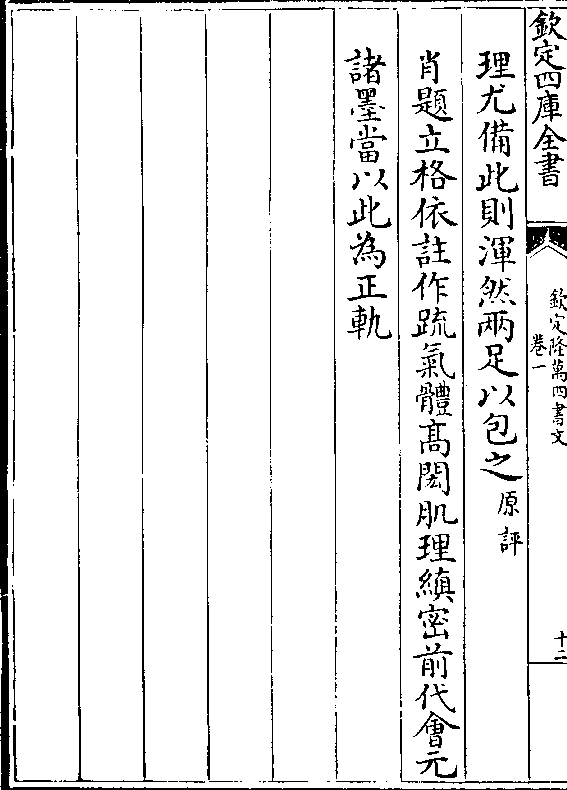 欽定四庫全書
欽定隆萬四書文
卷一
十二
理尤備此則渾然兩足以包之 原評
肖題立格依註作疏氣體髙閎肌理縝密前代會元
諸墨當以此為正軌